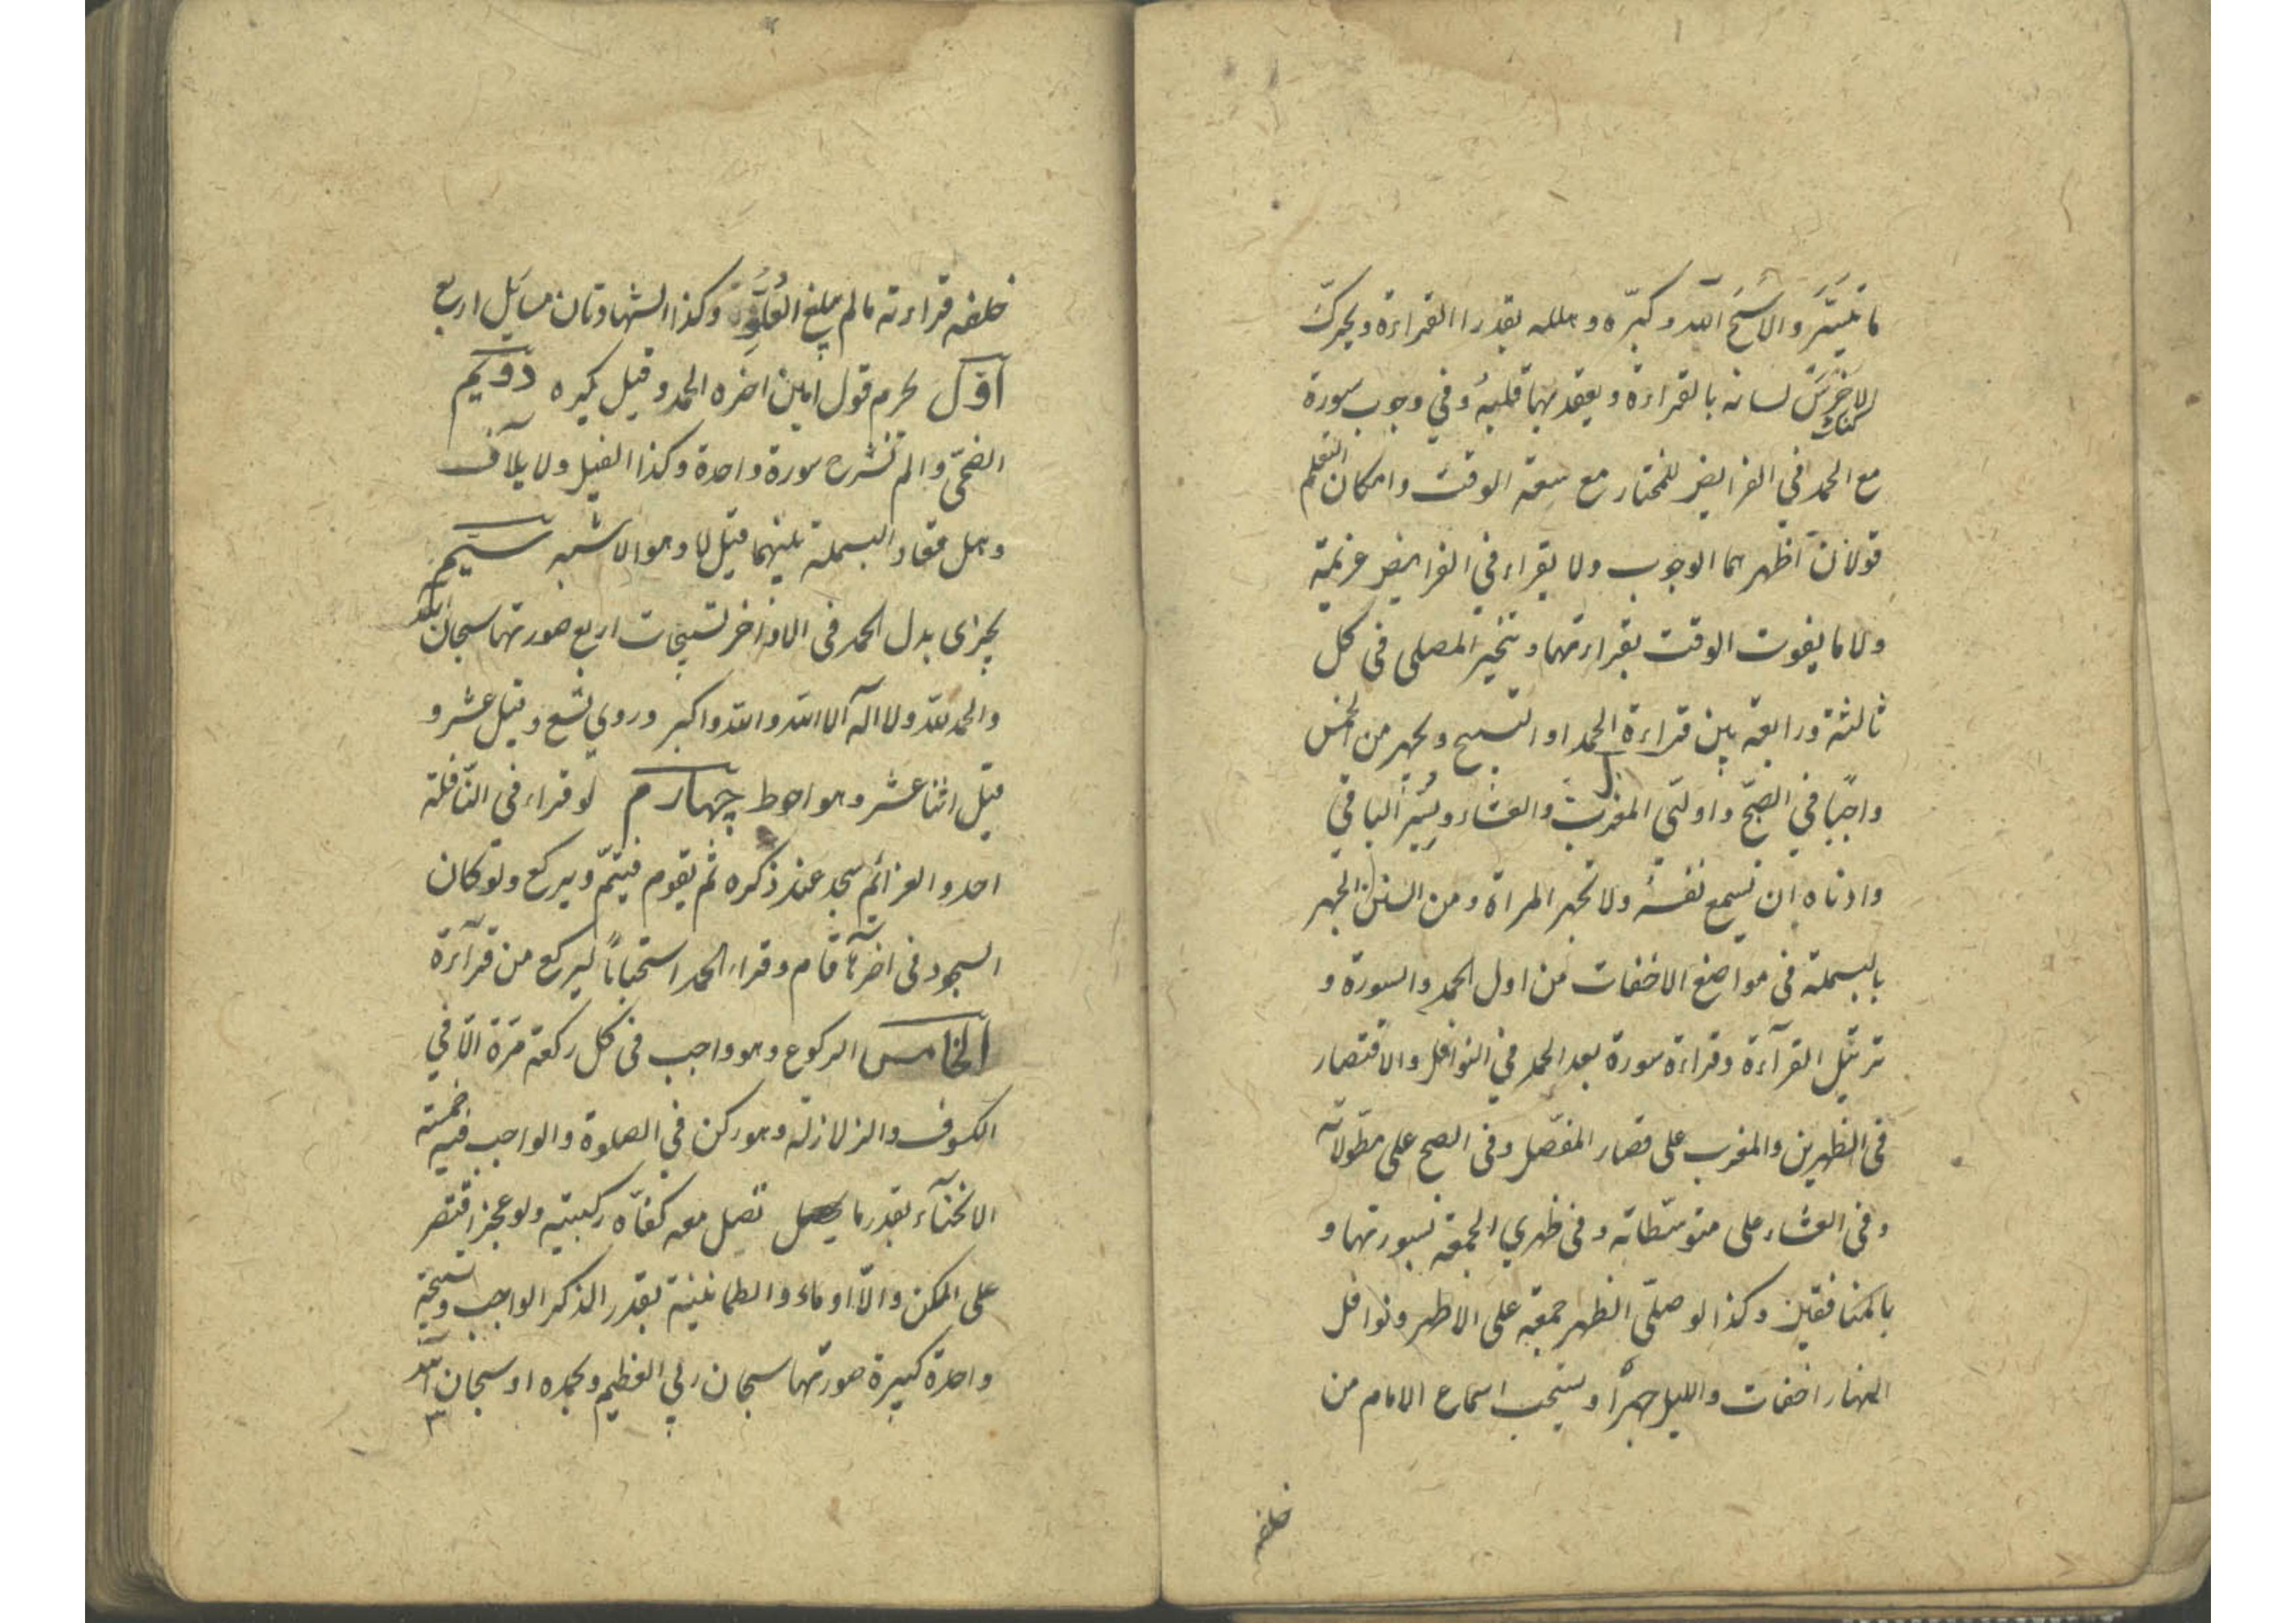 ما تيسّر والا سبّح الله وكبّره وهلله بقدر القراءة ويحرك
الاخرس لسانه بالقراءة ويعقد بها قلبه وفي وجوب سورة
مع الحمد في الفرايض للمختار مع سعة الوقت وامكان التعلم
قولان اظهرهما الوجوب ولا يقراء في الفرايض عزيمة
ولا ما يفوت الوقت بقراءتها و يتخير المصلي في كل
ثالثة ورابعة بين قراءة الحمد او التسبيح ويجهر من الخمس
واجبًا في الصبح واولتي المغرب والعشاء ويُسِرّ الباقي
وادناه ان يسمع نفسه ولا تجهر المراة ومن السنن الجهر
بالبسملة في مواضع الاخفات من اول الحمد والسورة و
ترتيل القرآءة وقراءة سورة بعد الحمد في النوافل والاقتصار
في الظهرين والمغرب على قصار المفصّل وفي الصبح على مطوّلاته
وفي العشاء على متوسّطاته وفي ظهري الجمعة بسورتها و
بالمنافقين وكذا لو صلّى الظهر جمعة على الاظهر ونوافل
النهار اخفات والليل جهرًا ويستحب اسماع الامام من
خلفه
خلفه قراءته ما لم يبلغ العُلُوّ وكذا الشهادتان مسايل اربع
اوّل يحرم قول امين اخره الحمد وقيل يكره دوّيم
الضحى والم نشرح سورة واحدة وكذا الفيل ولايلاف
وهل تعاد البسملة بينهما قيل لا وهو الاشبه سيّم
يجزى بدل الحمد فى الاواخر تسبيحات اربع صورتها سبحان الله
والحمد لله ولا اله الا الله والله اكبر وروي تسع وقيل عشر و
قيل اثنا عشر وهو احوط چهارم لو قراء فى النّافلة
احد والعزائم سجد عند ذكره ثم يقوم فيتمّ ويركع ولو كان
السجود فى آخرها قام وقراء الحمد استحبابًا ليركع من قرآءة
الخامس الركوع وهو واجب فى كل ركعة مرّة الّا في
الكسوف والزلازلة وهو ركن في الصلوة والواجب فيه خمسة
الانحنآء بقدر ما تصل معه كفّاه ركبتيه ولو عجز اقتصر
على الممكن والّا اوماء والطمانينة بقدر الذكر الواجب وتسبيحة
واحدة كبيرة صورتها سبحان ربي العظيم وبحمده او سبحان الله
٣